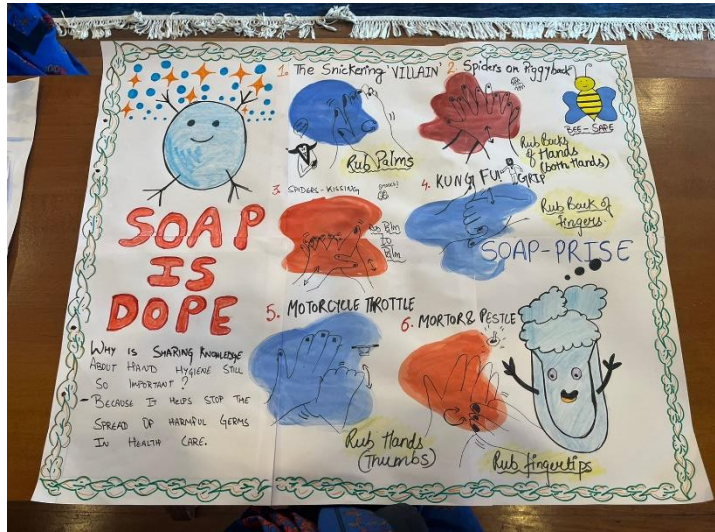 1. The Snickering 'VILLAIN'
Rub Palms
2. Spiders on Piggyback
Rub Backs
of Hands
(both Hands)
BEE-SAFE
3. SPIDERS-KISSING
Rub Palm
to
Palm
4. KUNG FU GRIP
Rub Back of
fingers.
SOAP-PRISE
SOAP
IS
DOPE
5. MOTORCYCLE THROTTLE
Rub Hands
(Thumbs)
6. MORTOR & PESTLE
Rub fingertips
WHY IS SHARING KNOWLEDGE
ABOUT HAND HYGIENE STILL
SO IMPORTANT?
- BECAUSE IT HELPS STOP THE
SPREAD OF HARMFUL GERMS
IN HEALTH CARE.